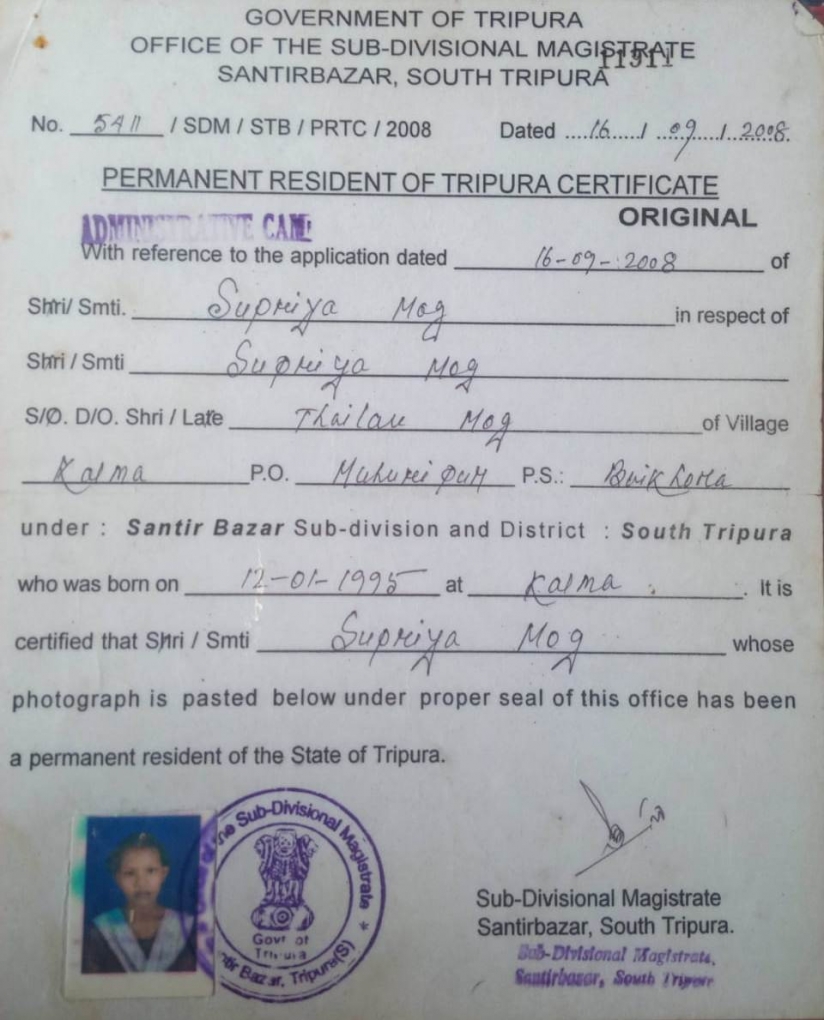 GOVERNMENT OF TRIPURA
OFFICE OF THE SUB-DIVISIONAL MAGISTRATE
SANTIRBAZAR, SOUTH TRIPURA
11911
No. 5411 / SDM / STB / PRTC / 2008 Dated ....16...../ ...09..../..2008.
PERMANENT RESIDENT OF TRIPURA CERTIFICATE
ORIGINAL
ADMINISTRATIVE CAMP
With reference to the application dated 16-09-2008 of
Shri/ Smti. Supriya Mog in respect of
Shri / Smti Supriya Mog
S/O. D/O. Shri / Late Thailau Mog of Village
Kalma P.O. Muhuripur P.S.: Baikhora
under : Santir Bazar Sub-division and District : South Tripura
who was born on 12-01-1995 at Kalma . It is
certified that Shri / Smti Supriya Mog whose
photograph is pasted below under proper seal of this office has been
a permanent resident of the State of Tripura.
of the Sub-Divisional Magistrate *
Govt of
Tripura
Santir Bazar, Tripura(S)
Sub-Divisional Magistrate
Santirbazar, South Tripura.
Sub-Divisional Magistrate,
Santirbazar, South Tripura